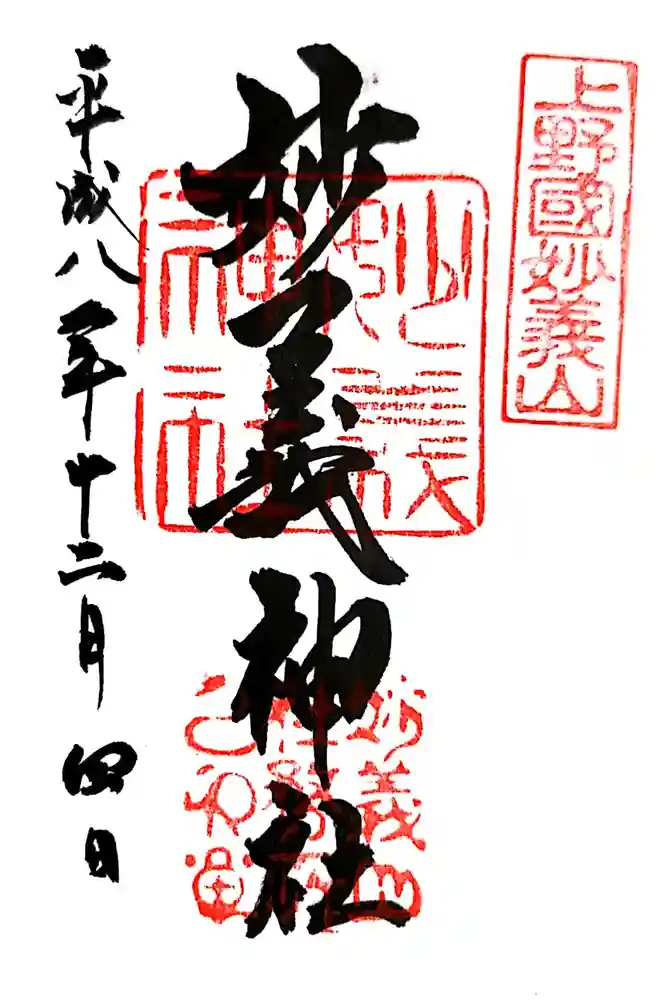 上野國妙義山
妙義神社
妙義
神社
妙義山
平成八年十二月四日